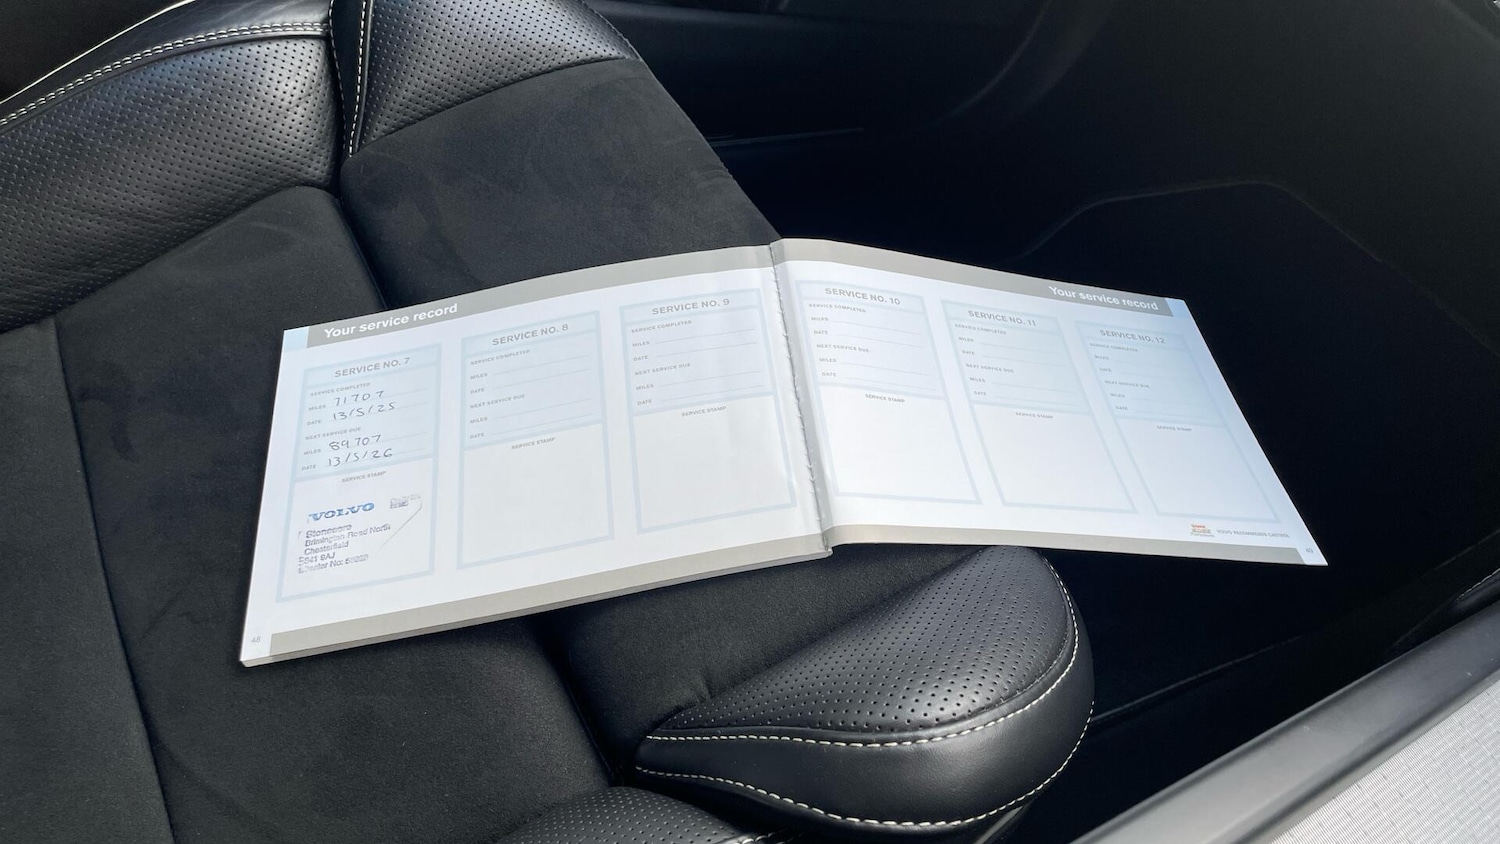 Your service record
SERVICE NO. 7
SERVICE COMPLETED
MILES 71707
DATE 13/5/25
NEXT SERVICE DUE
MILES 89707
DATE 13/5/26
SERVICE STAMP
VOLVO
Stoneacre
Brimington Road North
Chesterfield
S41 9AJ
SERVICE NO. 8
SERVICE COMPLETED
MILES
DATE
NEXT SERVICE DUE
MILES
DATE
SERVICE STAMP
SERVICE NO. 9
SERVICE COMPLETED
MILES
DATE
NEXT SERVICE DUE
MILES
DATE
SERVICE STAMP
48
Your service record
SERVICE NO. 10
SERVICE COMPLETED
MILES
DATE
NEXT SERVICE DUE
MILES
DATE
SERVICE STAMP
SERVICE NO. 11
SERVICE COMPLETED
MILES
DATE
NEXT SERVICE DUE
MILES
DATE
SERVICE STAMP
SERVICE NO. 12
SERVICE COMPLETED
MILES
DATE
NEXT SERVICE DUE
MILES
DATE
SERVICE STAMP
VOLVO RECOMMENDS CASTROL
49